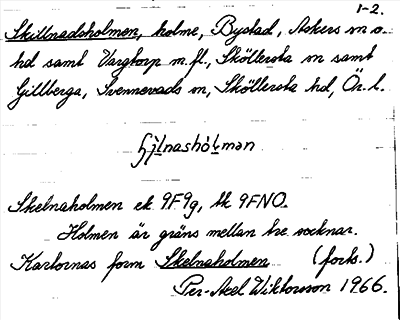 1-2.
Skillnadsholmen, holme, Bystad, Askers sn o.
hd samt Vargtorp m.fl., Sköllersta sn samt
Gillberga, Svennevads sn, Sköllersta hd, Ör. l.
Skelnaholmen ek 9F9g, tk 9FNO.
Holmen är gräns mellan tre socknar.
Kartornas form Skelnaholmen (forts.)
Per-Axel Wiktorsson 1966.